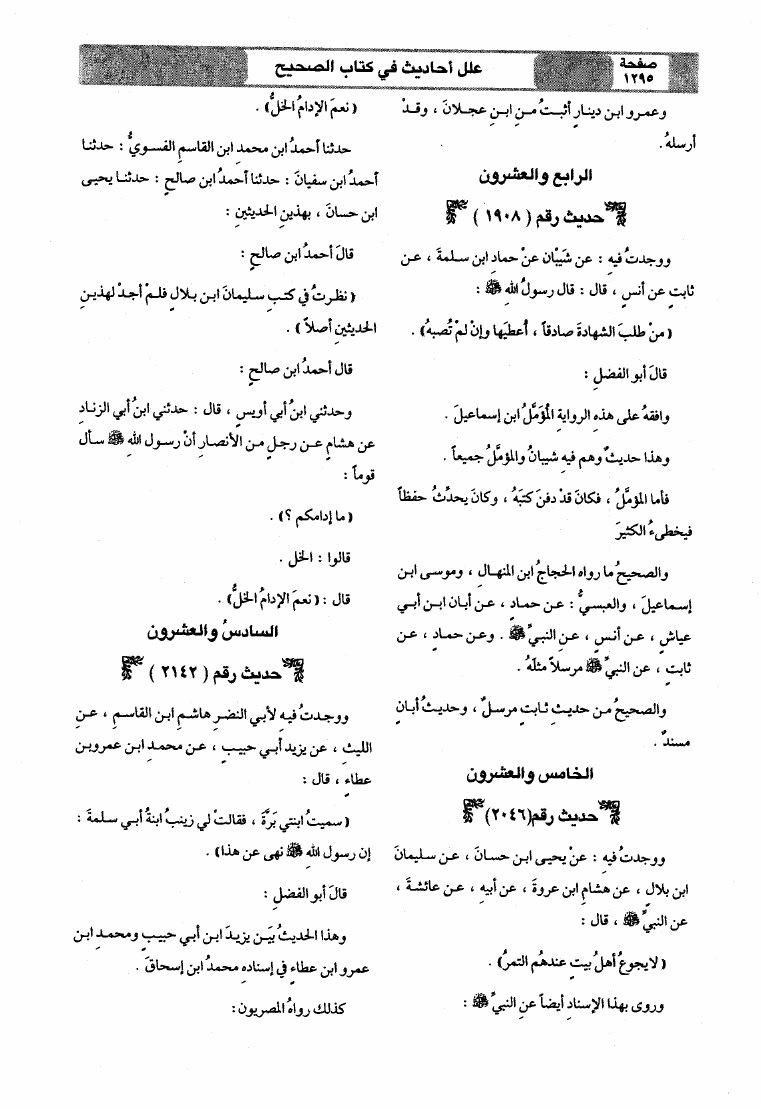 صفحة
١٢٩٥
علل أحاديث في كتاب الصحيح
وعمرو ابن دينارٍ أثبتُ من ابنِ عجلانَ ، وقدْ
أرسلهُ.
الرابع والعشرون
حديث رقم ( ١٩٠٨ )
ووجدتُ فيهِ : عن شَيْبَان عنْ حماد ابن سلمةَ ، عن
ثابت عن أنسٍ ، قال : قال رسولُ الله ﷺ :
(منْ طلبَ الشهادةَ صادقاً ، أُعطيَها وإنْ لمْ تُصبهُ) .
قالَ أبو الفضلِ :
وافقهُ على هذهِ الروايةِ المُؤَمَّلُ ابن إسماعيلَ .
وهذا حديثٌ وهم فيهِ شيبانُ والمؤمَّلُ جميعاً .
فأما المؤمَّلُ ، فكانَ قدْ دفنَ كتبَهُ ، وكانَ يحدِّثُ حفظاً
فيخطىءُ الكثيرَ
والصحيحُ ما رواه الحجاجُ ابن المنهالِ ، وموسى ابن
إسماعيلَ ، والعبسيُّ : عن حمادٍ ، عن أبان ابن أبي
عياشٍ ، عن أنسٍ ، عنِ النبيِّ ﷺ . وعن حمادٍ ، عن
ثابتٍ ، عن النبيِّ ﷺ مرسلاً مثلَهُ .
والصحيحُ من حديثِ ثابتٍ مرسلٌ ، وحديثُ أبانٍ
مسندٌ .
الخامس والعشرون
حديث رقم(٢٠٤٦)
ووجدتُ فيه : عنْ يحيى ابن حسانَ ، عن سليمانَ
ابن بلالٍ ، عن هشامِ ابن عروةَ ، عن أبيهِ ، عن عائشةَ ،
عن النبيِّ ﷺ ، قال :
(لا يجوعُ أهلُ بيت عندهُم التمرُ) .
وروى بهذا الإسنادِ أيضاً عنِ النبيِّ ﷺ :
(نعمَ الإدامُ الخلُّ) .
حدثنا أحمدُ ابن محمد ابن القاسمِ الفسويُّ : حدثنا
أحمدُ ابن سفيانَ : حدثنا أحمدُ ابن صالحٍ : حدثنا يحيى
ابن حسانَ ، بهذينِ الحديثينِ :
قالَ أحمدُ ابن صالحٍ :
(نظرتُ في كتبِ سليمانَ ابن بلالٍ فلمْ أجدْ لهذينِ
الحديثينِ أصلاً) .
قال أحمدُ ابن صالحٍ :
وحدثني ابنُ أبي أويسٍ ، قال : حدثني ابنُ أبي الزنادِ
عن هشامٍ عن رجلٍ من الأنصارِ أنْ رسول الله ﷺ سألَ
قوماً :
(ما إدامكم ؟) .
قالوا : الخل .
قال : (نعمَ الإدامُ الخلُّ) .
السادسُ والعشرون
حديث رقم ( ٢١٤٢ )
ووجدتُ فيهِ لأبي النضرِ هاشمِ ابن القاسمِ ، عنِ
الليثِ ، عن يزيد أبي حبيبٍ ، عن محمدِ ابن عمروبن
عطاء ، قال :
(سميتُ ابنتي بَرَّةَ ، فقالتْ لي زينبُ ابنةُ أبي سلمةَ :
إن رسول الله ﷺ نهى عن هذا) .
قالَ أبو الفضلِ :
وهذا الحديثُ بَيْن يزيدَ ابن أبي حبيبٍ ومحمدِ ابن
عمرو ابن عطاءٍ في إسنادِهِ محمدُ ابن إسحاقَ .
كذلكَ رواهُ المصريون: